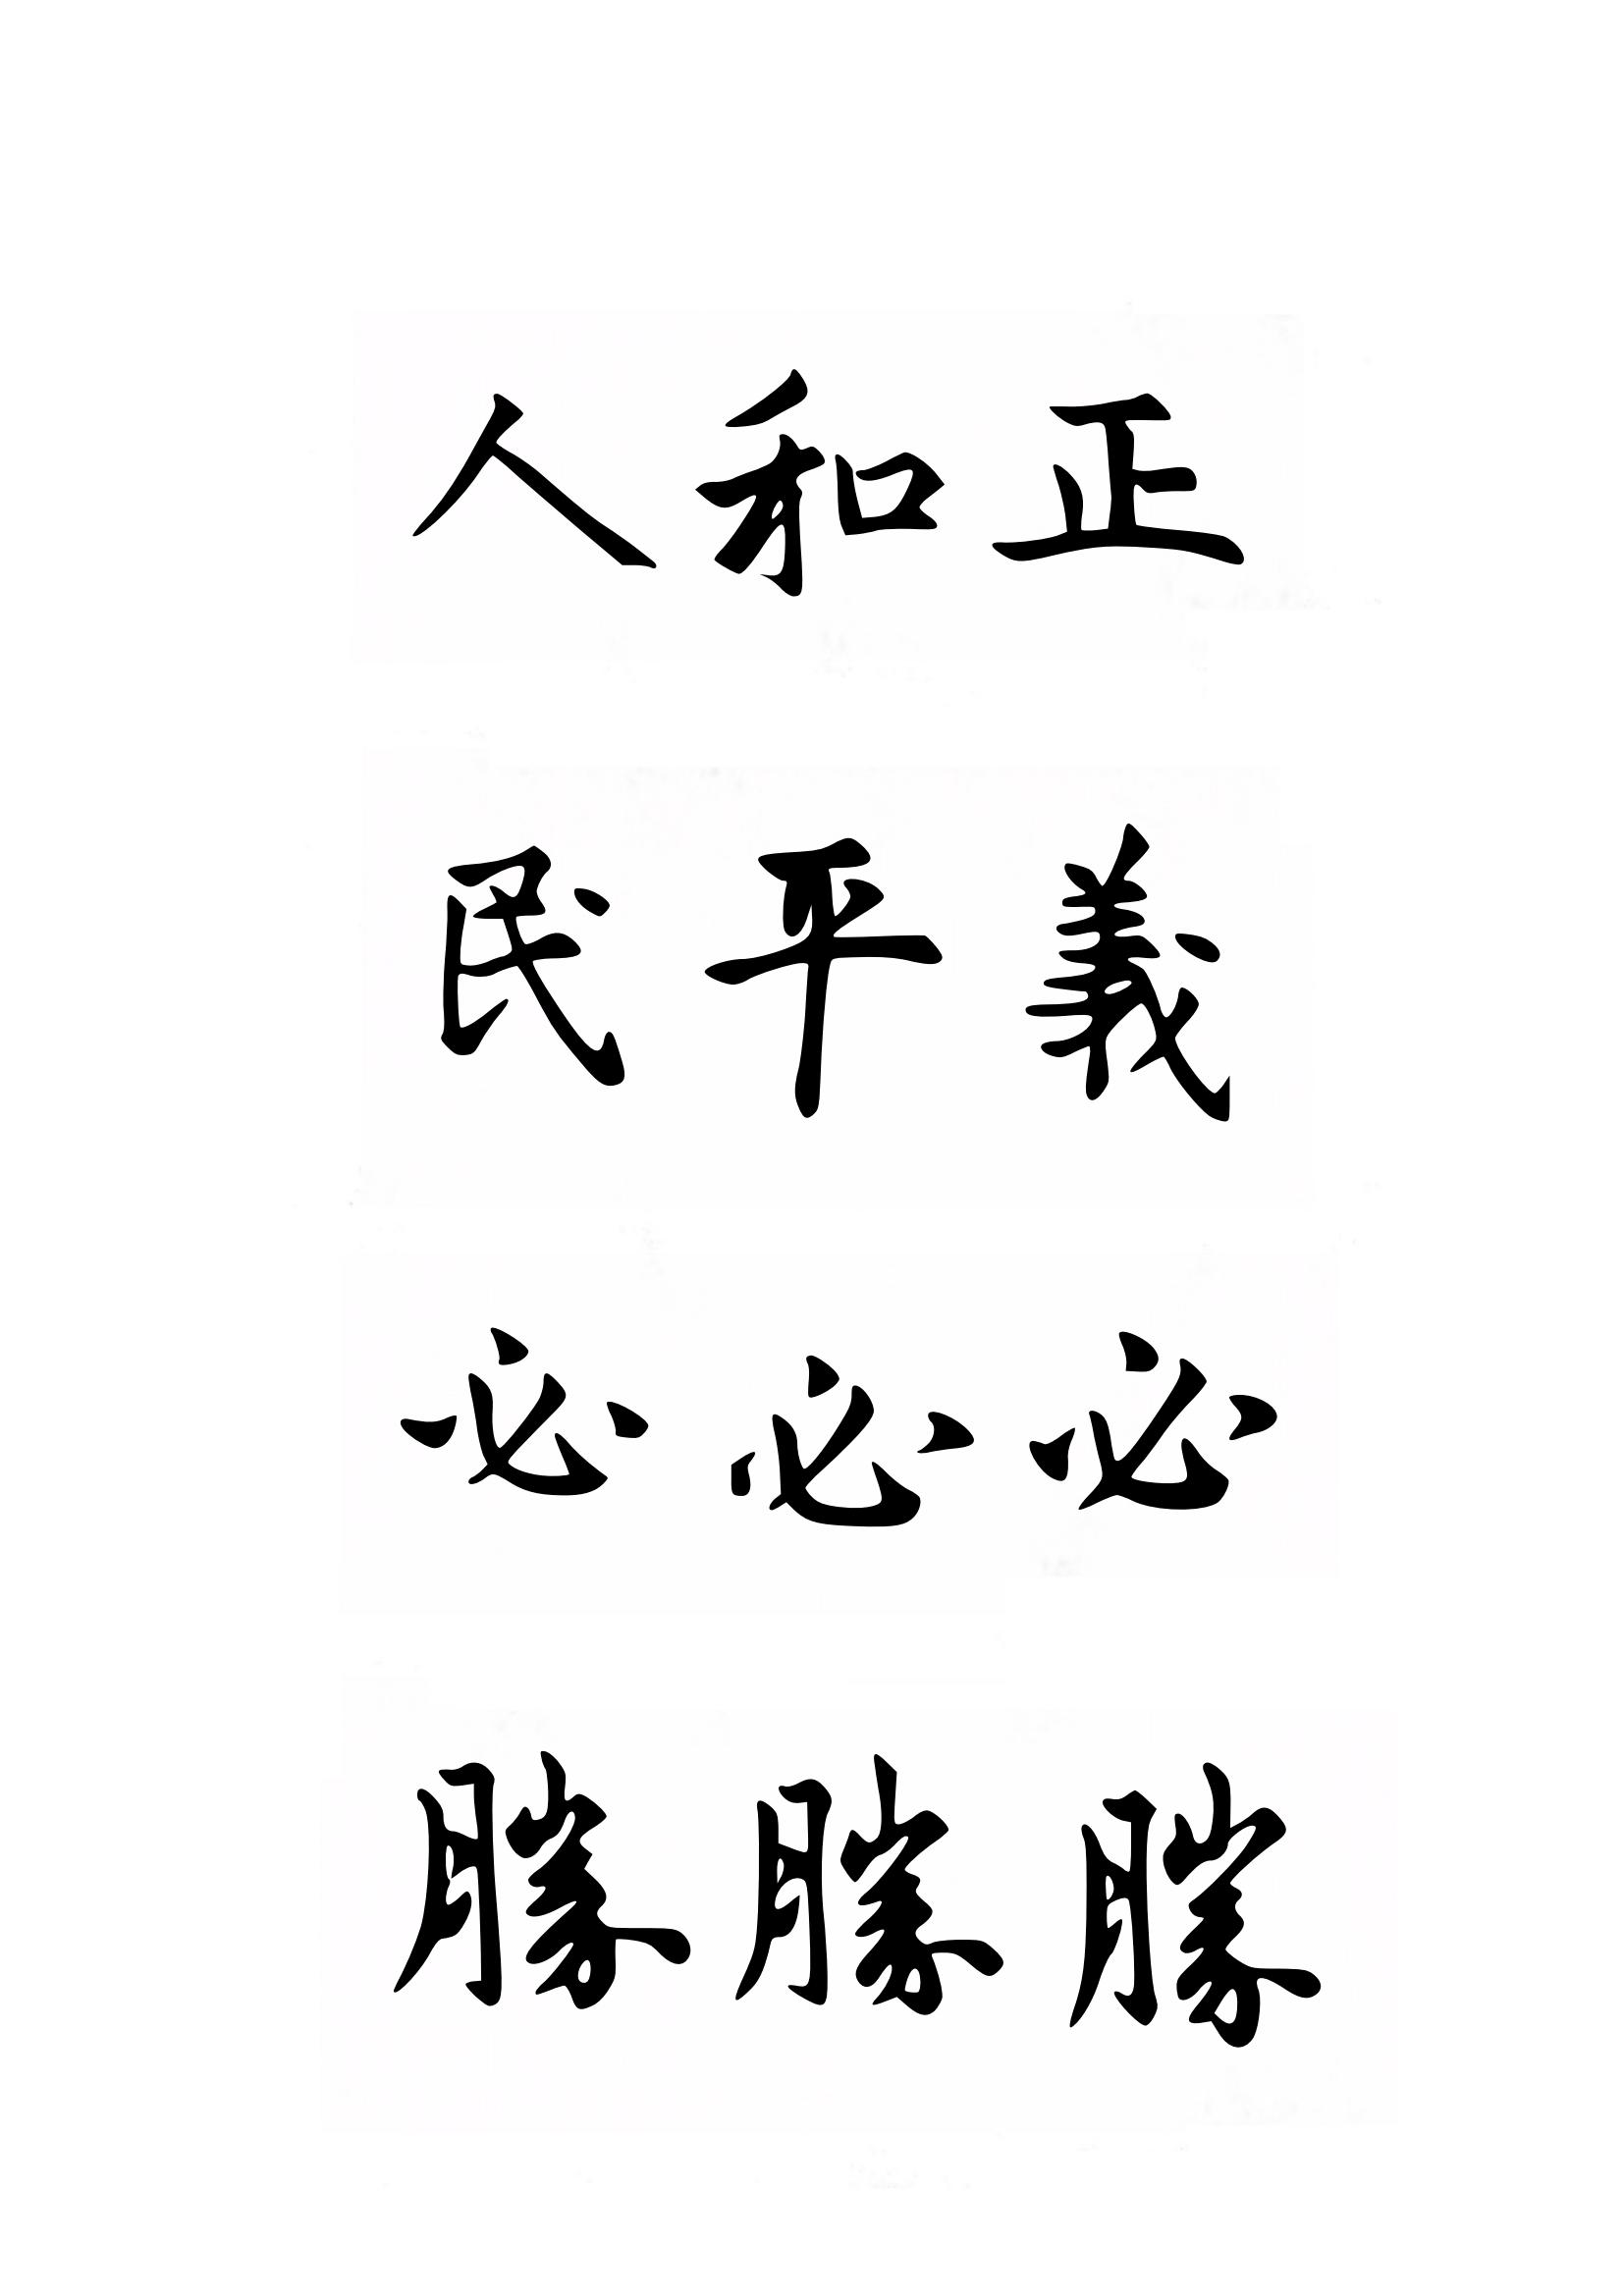 正義必勝
和平必勝
人民必勝